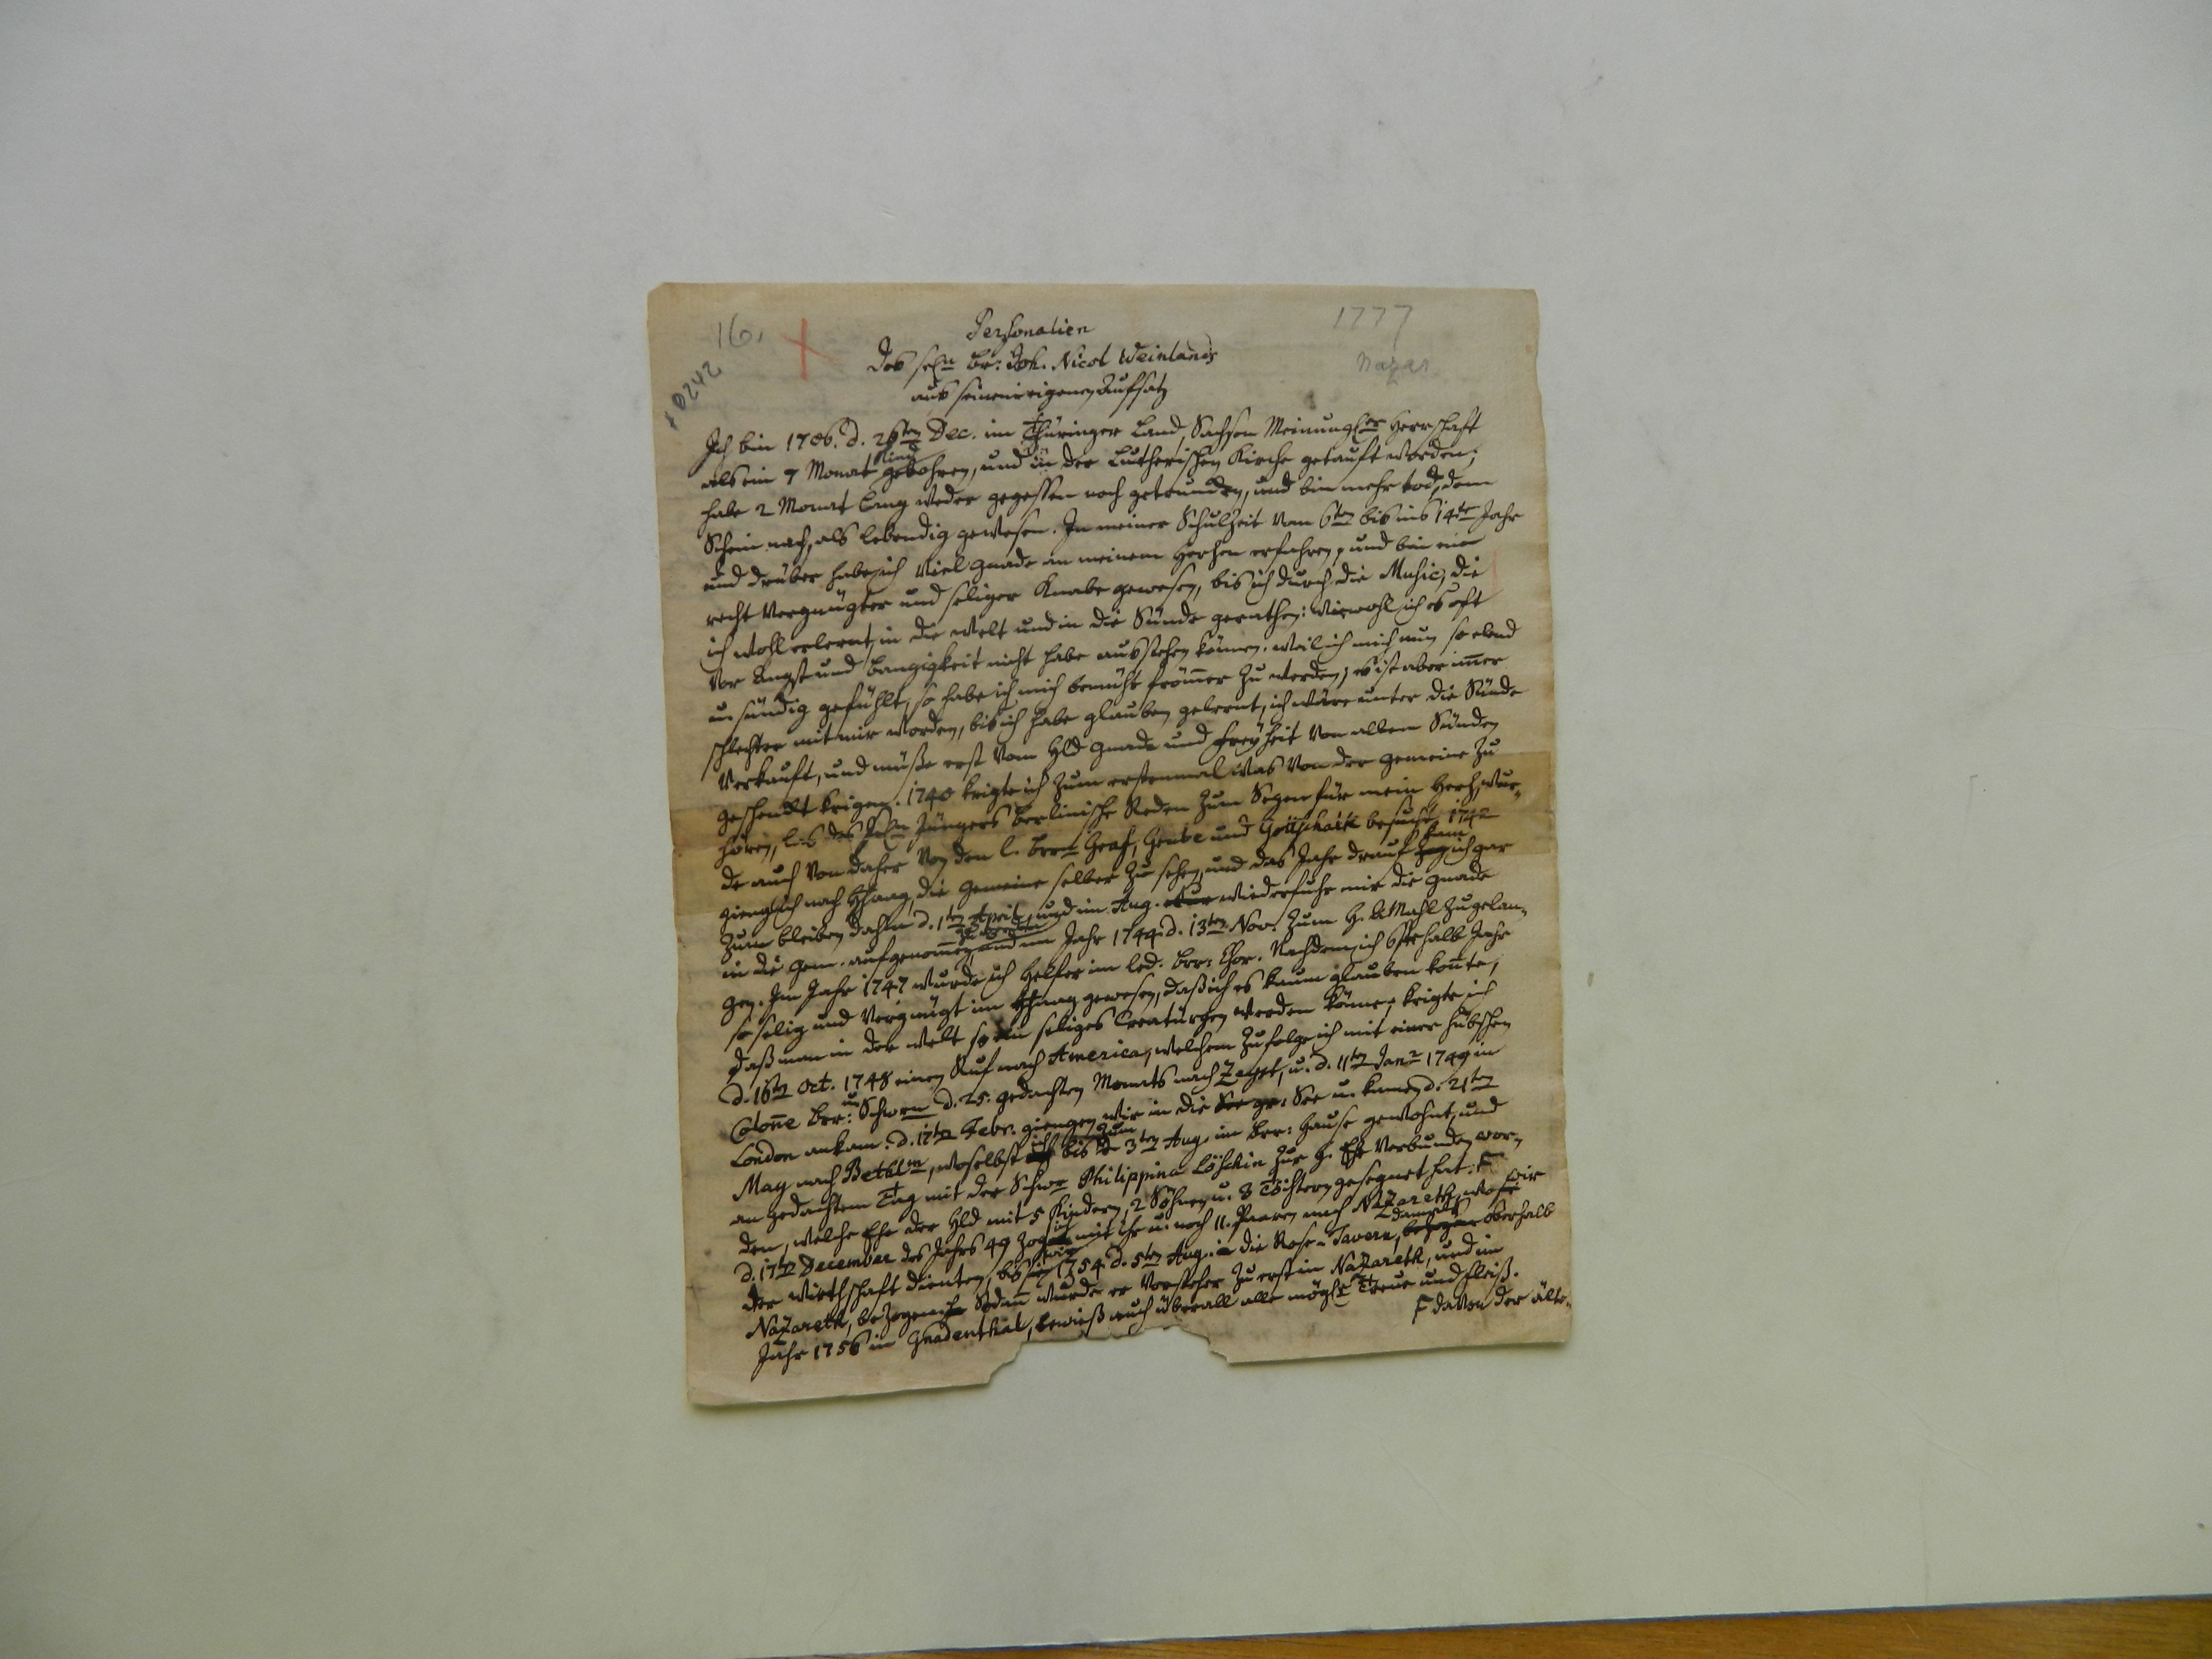 16.
1777
0242
Nazar
Personalien
des seln Br: Joh. Nicol Weinlands
aus seinem eigenen Aufsatz
Ich bin 1706. d. 26ten Dec. im Thüringer Land, Sachsen Meinungser Herrschaft
als ein 7 Monat Kind gebohren, und in der Lutherischen Kirche getauft worden;
habe 2 Monat lang weder gegessen noch getrunken, und bin mehr tod, dem
Schein nach, als lebendig gewesen. In meiner Schulzeit vom 6ten bis ins 14te Jahr
und drüber habe ich viel Gnade an meinem Herzen erfahren, und bin ein
recht vergnügter und seliger Knabe gewesen, bis ich durch die Music, die
ich wohl erlernt, in die Welt und in die Sünde gerathen: wiewohl ich es oft
vor Angst und Bangigkeit nicht habe ausstehen können. Weil ich mich nun so elend
u. sündig gefühlt, so habe ich mich bemüht frömer zu werden; es ist aber imer
schlechter mit mir worden, bis ich habe glauben gelernt, ich wäre unter die Sünde
verkauft, und müße erst vom Hld Gnade und Freyheit von allen Sünden
geschenkt krigen. 1740 krigte ich zum erstenmal was von der Gemeine zu
hören, las des seln Jüngers Berlinische Reden zum Segen für mein Herz, wur-
de auch von daher von den l. Brrn Graf, Grube und Gottschalk besucht. 1742
gieng ich nach Hhaag, die Gemeine selber zu sehen, und das Jahr drauf kam ich gar
zum bleiben dahin d. 1ten April, und im Aug. wiederfuhr mir die Gnade
in die Gem. aufgenommen zu werden, und im Jahr 1744 d. 13ten Nov. zum H. AMahl zu gelan-
gen. Im Jahr 1747 wurde ich Helfer im led. Brr: Chor. Nachdem ich 6ttehalb Jahr
so selig und vergnügt im Hhaag gewesen, daß ich es kaum glauben konte,
daß man in der Welt so ein seliges Creatürgen werden könne, krigte ich
d. 16ten Oct. 1748 einen Ruf nach America, welchem zufolge ich mit einer hübschen
Colonne Brr: u. Schwn d. 25. gedachten Monats nach Zeyst, u. d. 11ten Janr 1749 in
London ankam. d. 17ten Febr. giengen wir in die See u. kamen d. 21ten
May nach Bethlm, woselbst ich bis zum 3ten Aug. im Brr: Hause gewohnt, und
an gedachtem Tag mit der Schwr Philippina Löschin zur H. Ehe verbunden wor-
den, welche Ehe der Hld mit 5 Kindern, 2 Söhnen u. 3 Töchtern gesegnet hat: F
d. 17ten December des Jahrs 49 zog ich mit ihr u. noch 11. Paaren nach Nazareth, wo wir
der Wirthschaft dienten, bis wir 1754 d. 5ten Aug. die Rose-Tavern, damals oberhalb
Nazareth, bezogen. Sodann wurde er Vorsteher zu erst in Nazareth, und im
Jahr 1756 in Gnadenthal, bewieß auch überall alle mögle Treue und Fleiß.
F davon der älte-